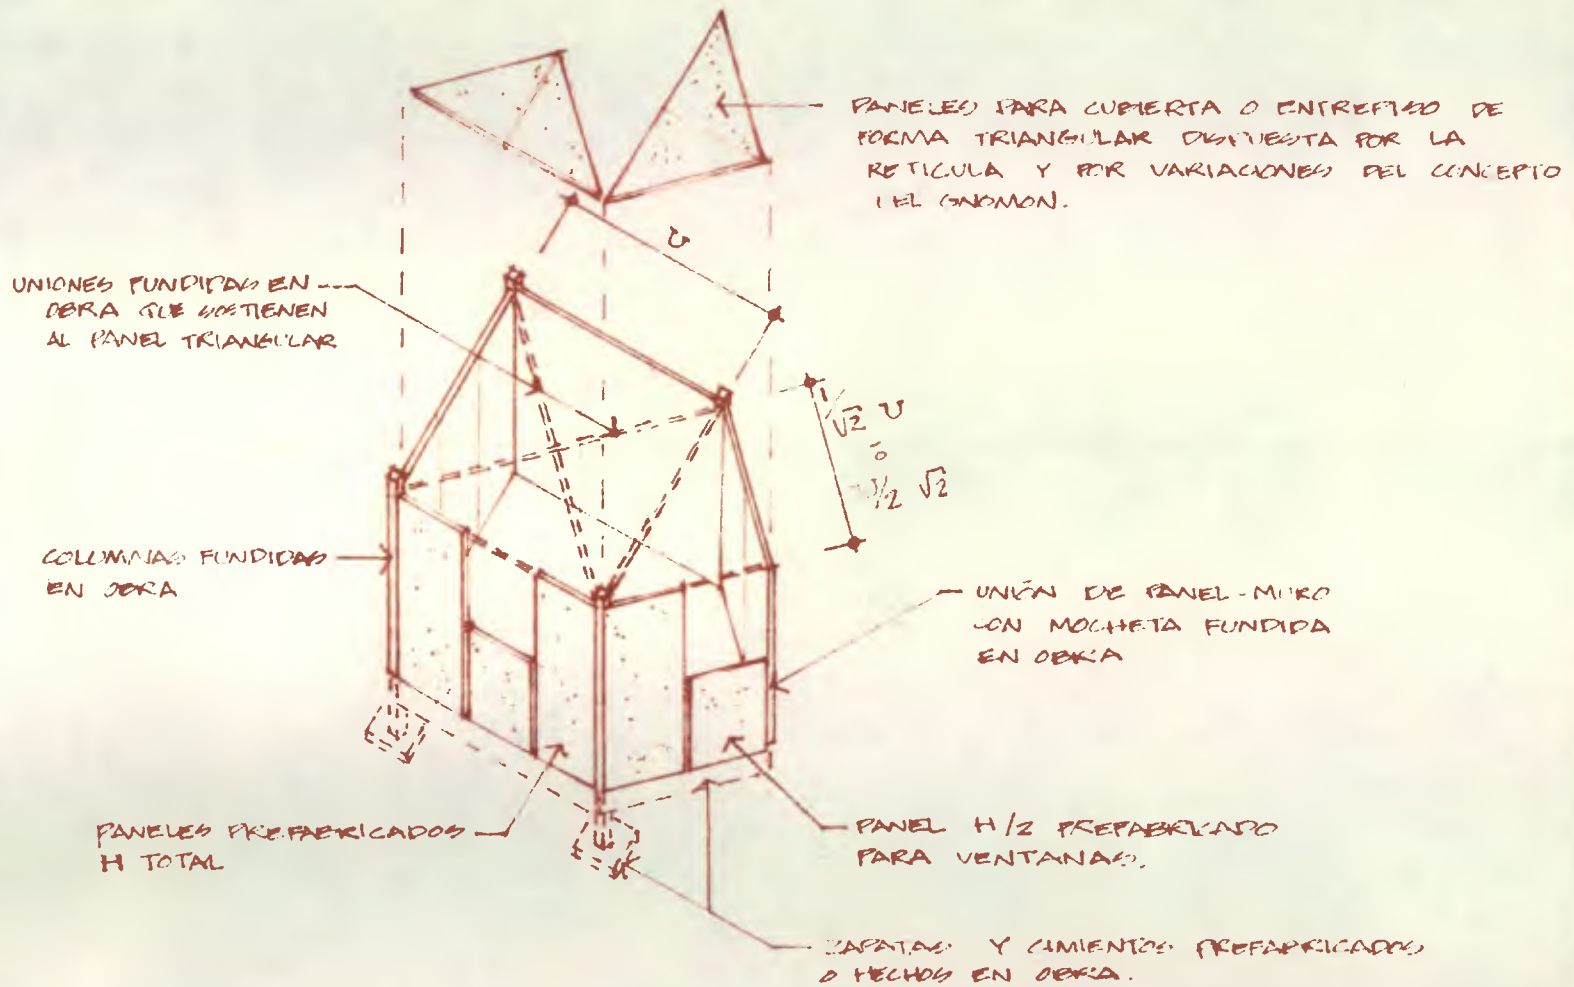 PANELES PARA CUBIERTA O ENTREPISO DE
FORMA TRIANGULAR DISPUESTA POR LA
RETICULA Y POR VARIACIONES DEL CONCEPTO
DEL GNOMON.
U
UNIONES FUNDIDAS EN
OBRA QUE SOSTIENEN
AL PANEL TRIANGULAR
1/√2 U
ó
U/2 √2
COLUMNAS FUNDIDAS
EN OBRA
UNIÓN DE PANEL-MURO
CON MOCHETA FUNDIDA
EN OBRA
PANELES PREFABRICADOS
H TOTAL
PANEL H/2 PREFABRICADO
PARA VENTANAS.
ZAPATAS Y CIMIENTOS PREFABRICADOS
O HECHOS EN OBRA.